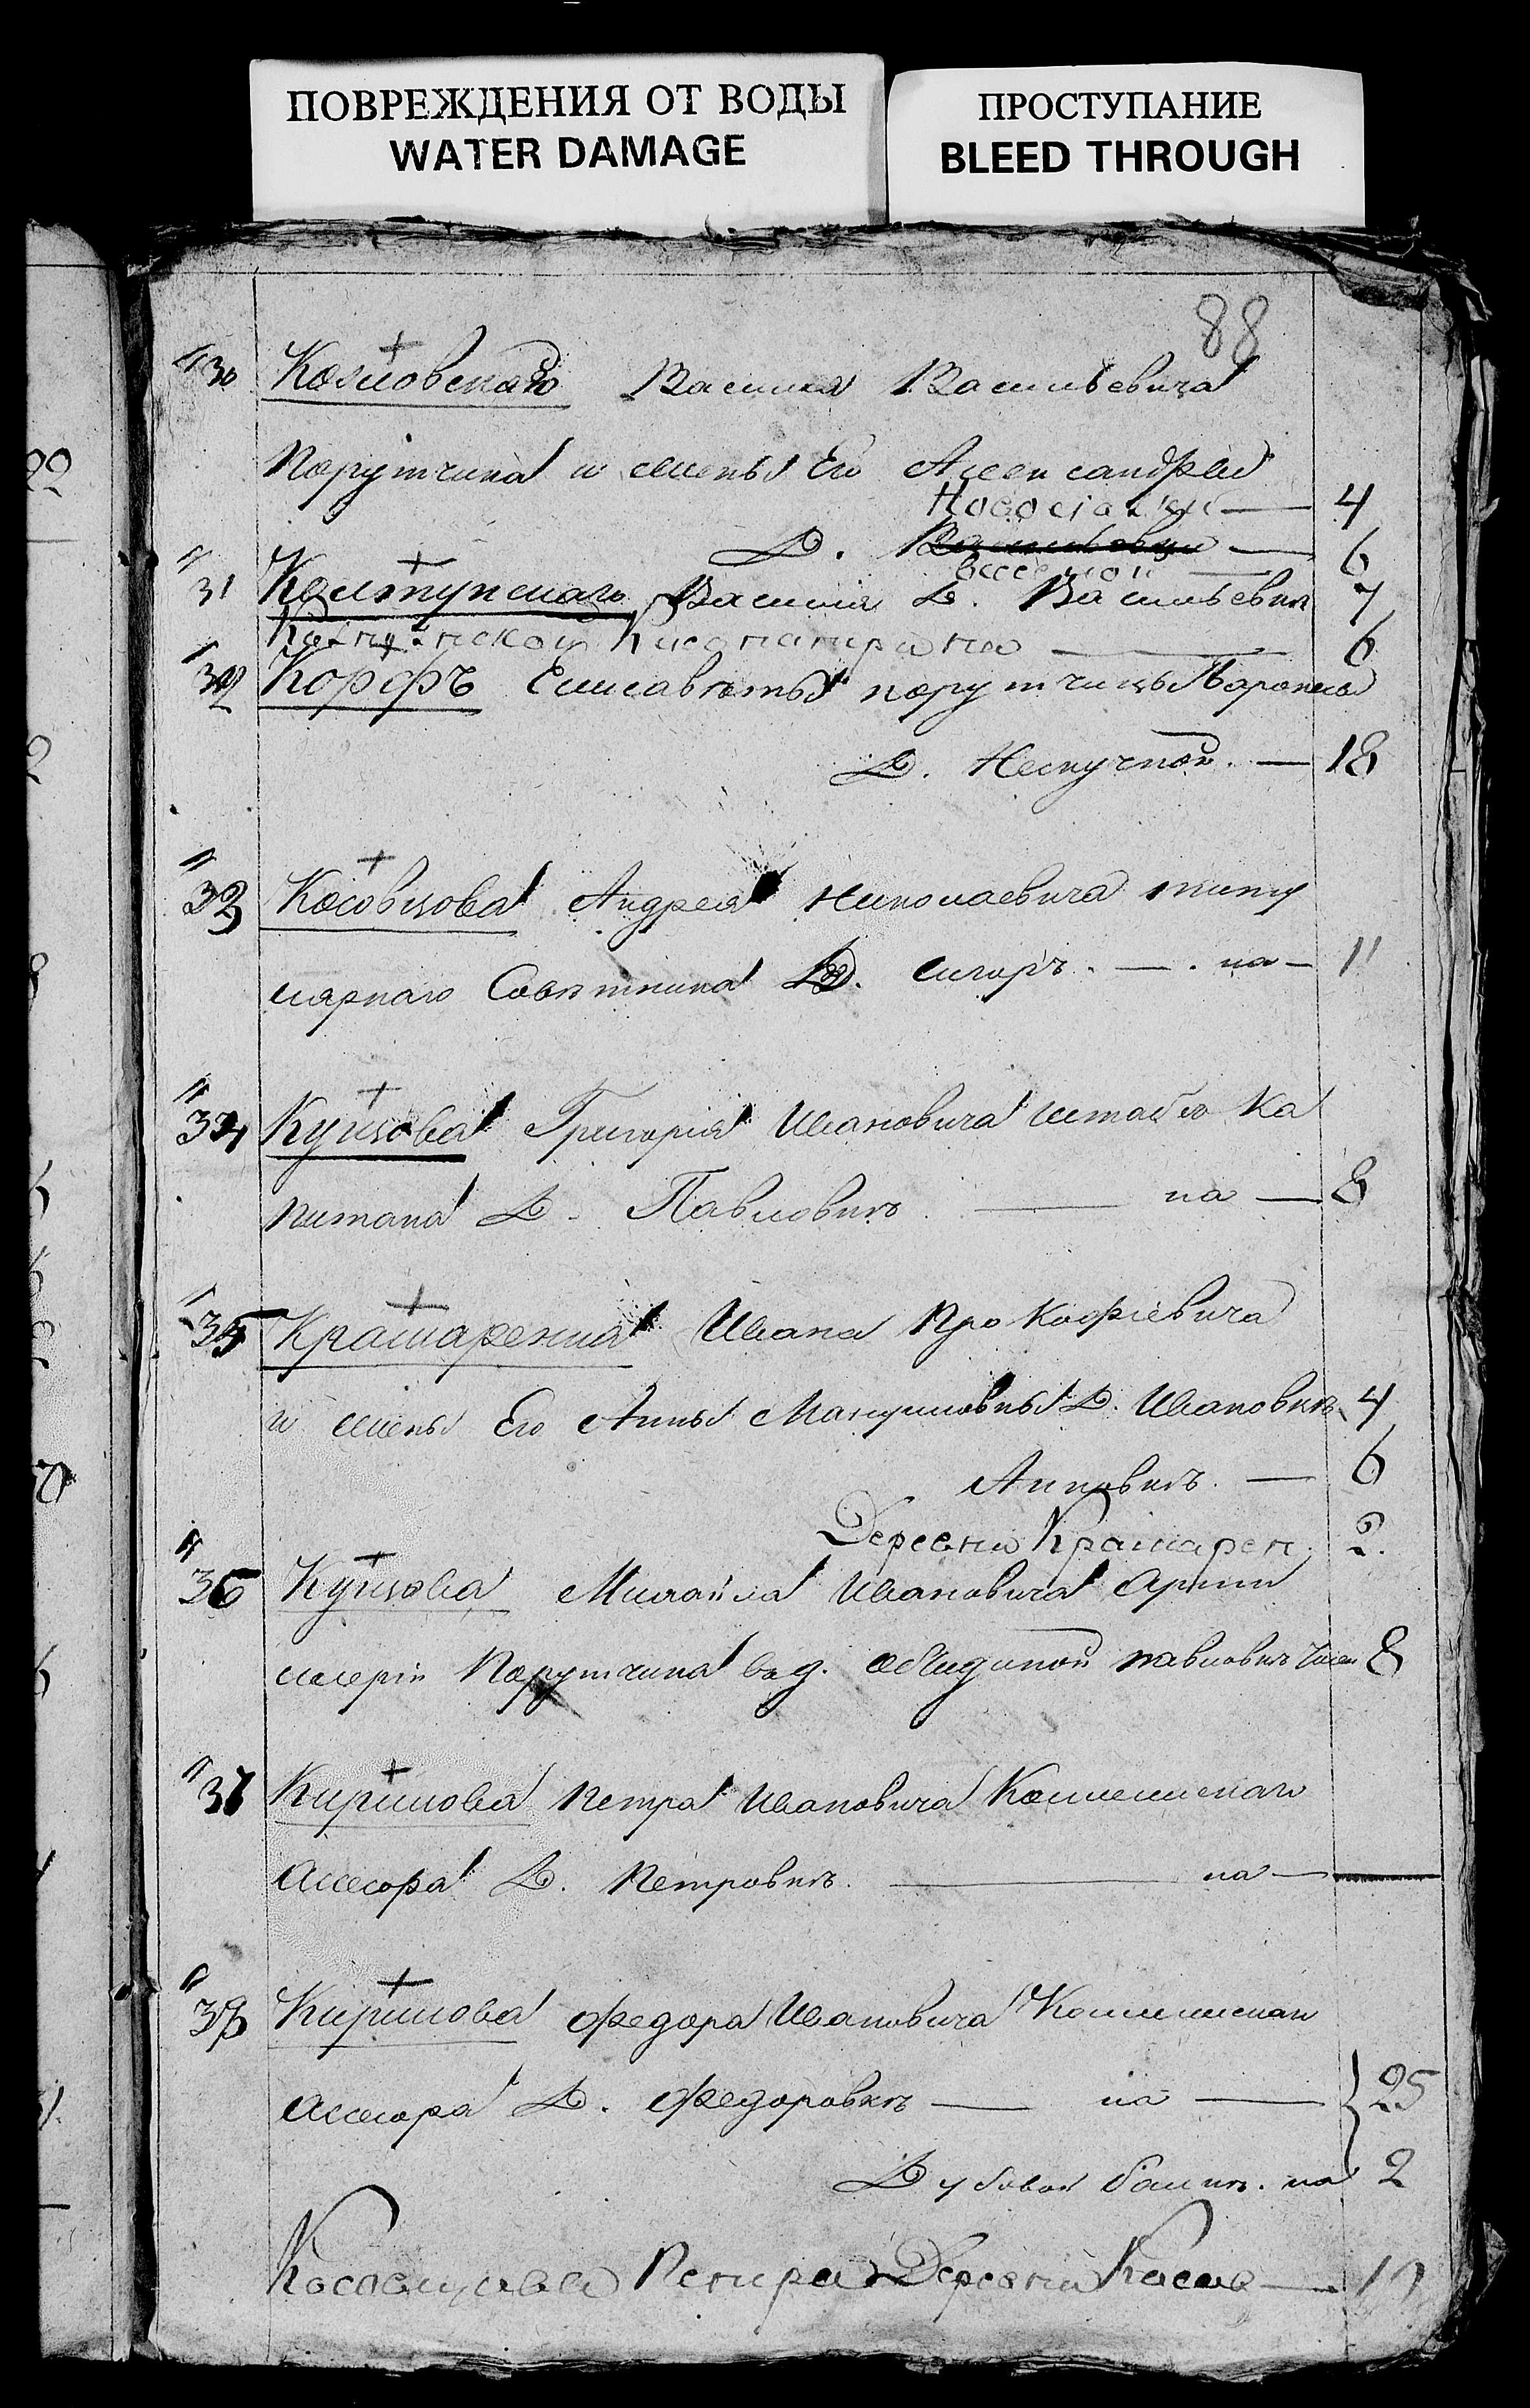 ПОВРЕЖДЕНИЯ ОТ ВОДЫ
WATER DAMAGE
ПРОСТУПАНИЕ
BLEED THROUGH
88
30 Козловскаго Василія Васильевича
порутчика и жены Его Александры
4
Д. 6
31 Колтунскаго Василія Д. Васильевки 7
6
32 Корфъ Елисаветы порутчицы Баронессы
Д. Нескучной. — 18
33 Косовцова Андрея Николаевича титу
лярнаго Советника Д. — на — 11
34 Купцова Григорія Ивановича штабсъ Ка
питана Д. Павловкъ — на — 8
35 Крамаренка Ивана Прокофіевича
и жены Его Анны Мануиловны Д. Ивановкъ 4
Анновкъ. — 6
Деревни Крамарен. 2.
36 Купцова Михайла Ивановича Арти
лерiи Порутчика в д. павловкъ 8
37 Кирилова Петра Ивановича Колежскаго
Асесора Д. Петровкъ. — на —
38 Кирилова Федора Ивановича Колежскаго
Асесора Д. Федоровкъ — на — 25
Дубовой балкъ. на 2
Петра Деревни